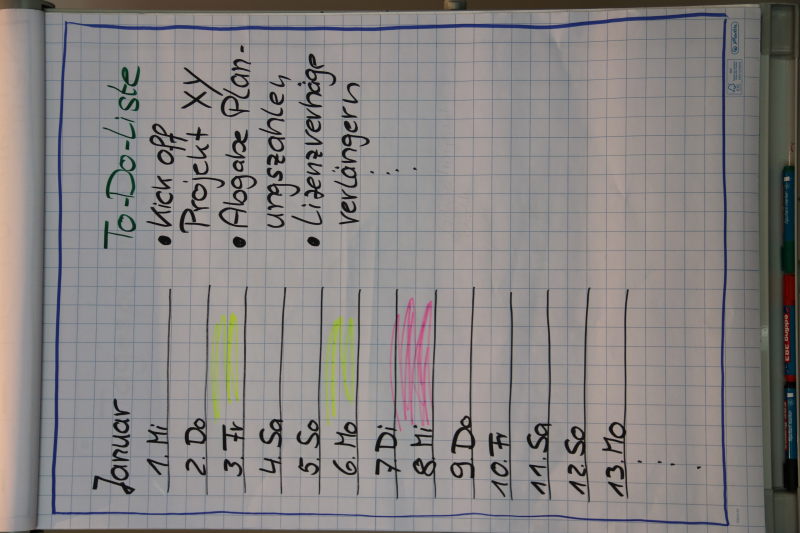 Januar
1. Mi
2. Do
3. Fr
4. Sa
5. So
6. Mo
7. Di
8. Mi
9. Do
10. Fr
11. Sa
12. So
13. Mo
To-Do-Liste
• Kick off
Projekt XY
• Abgabe Plan-
ungszahlen
• Lizenzverträge
verlängern